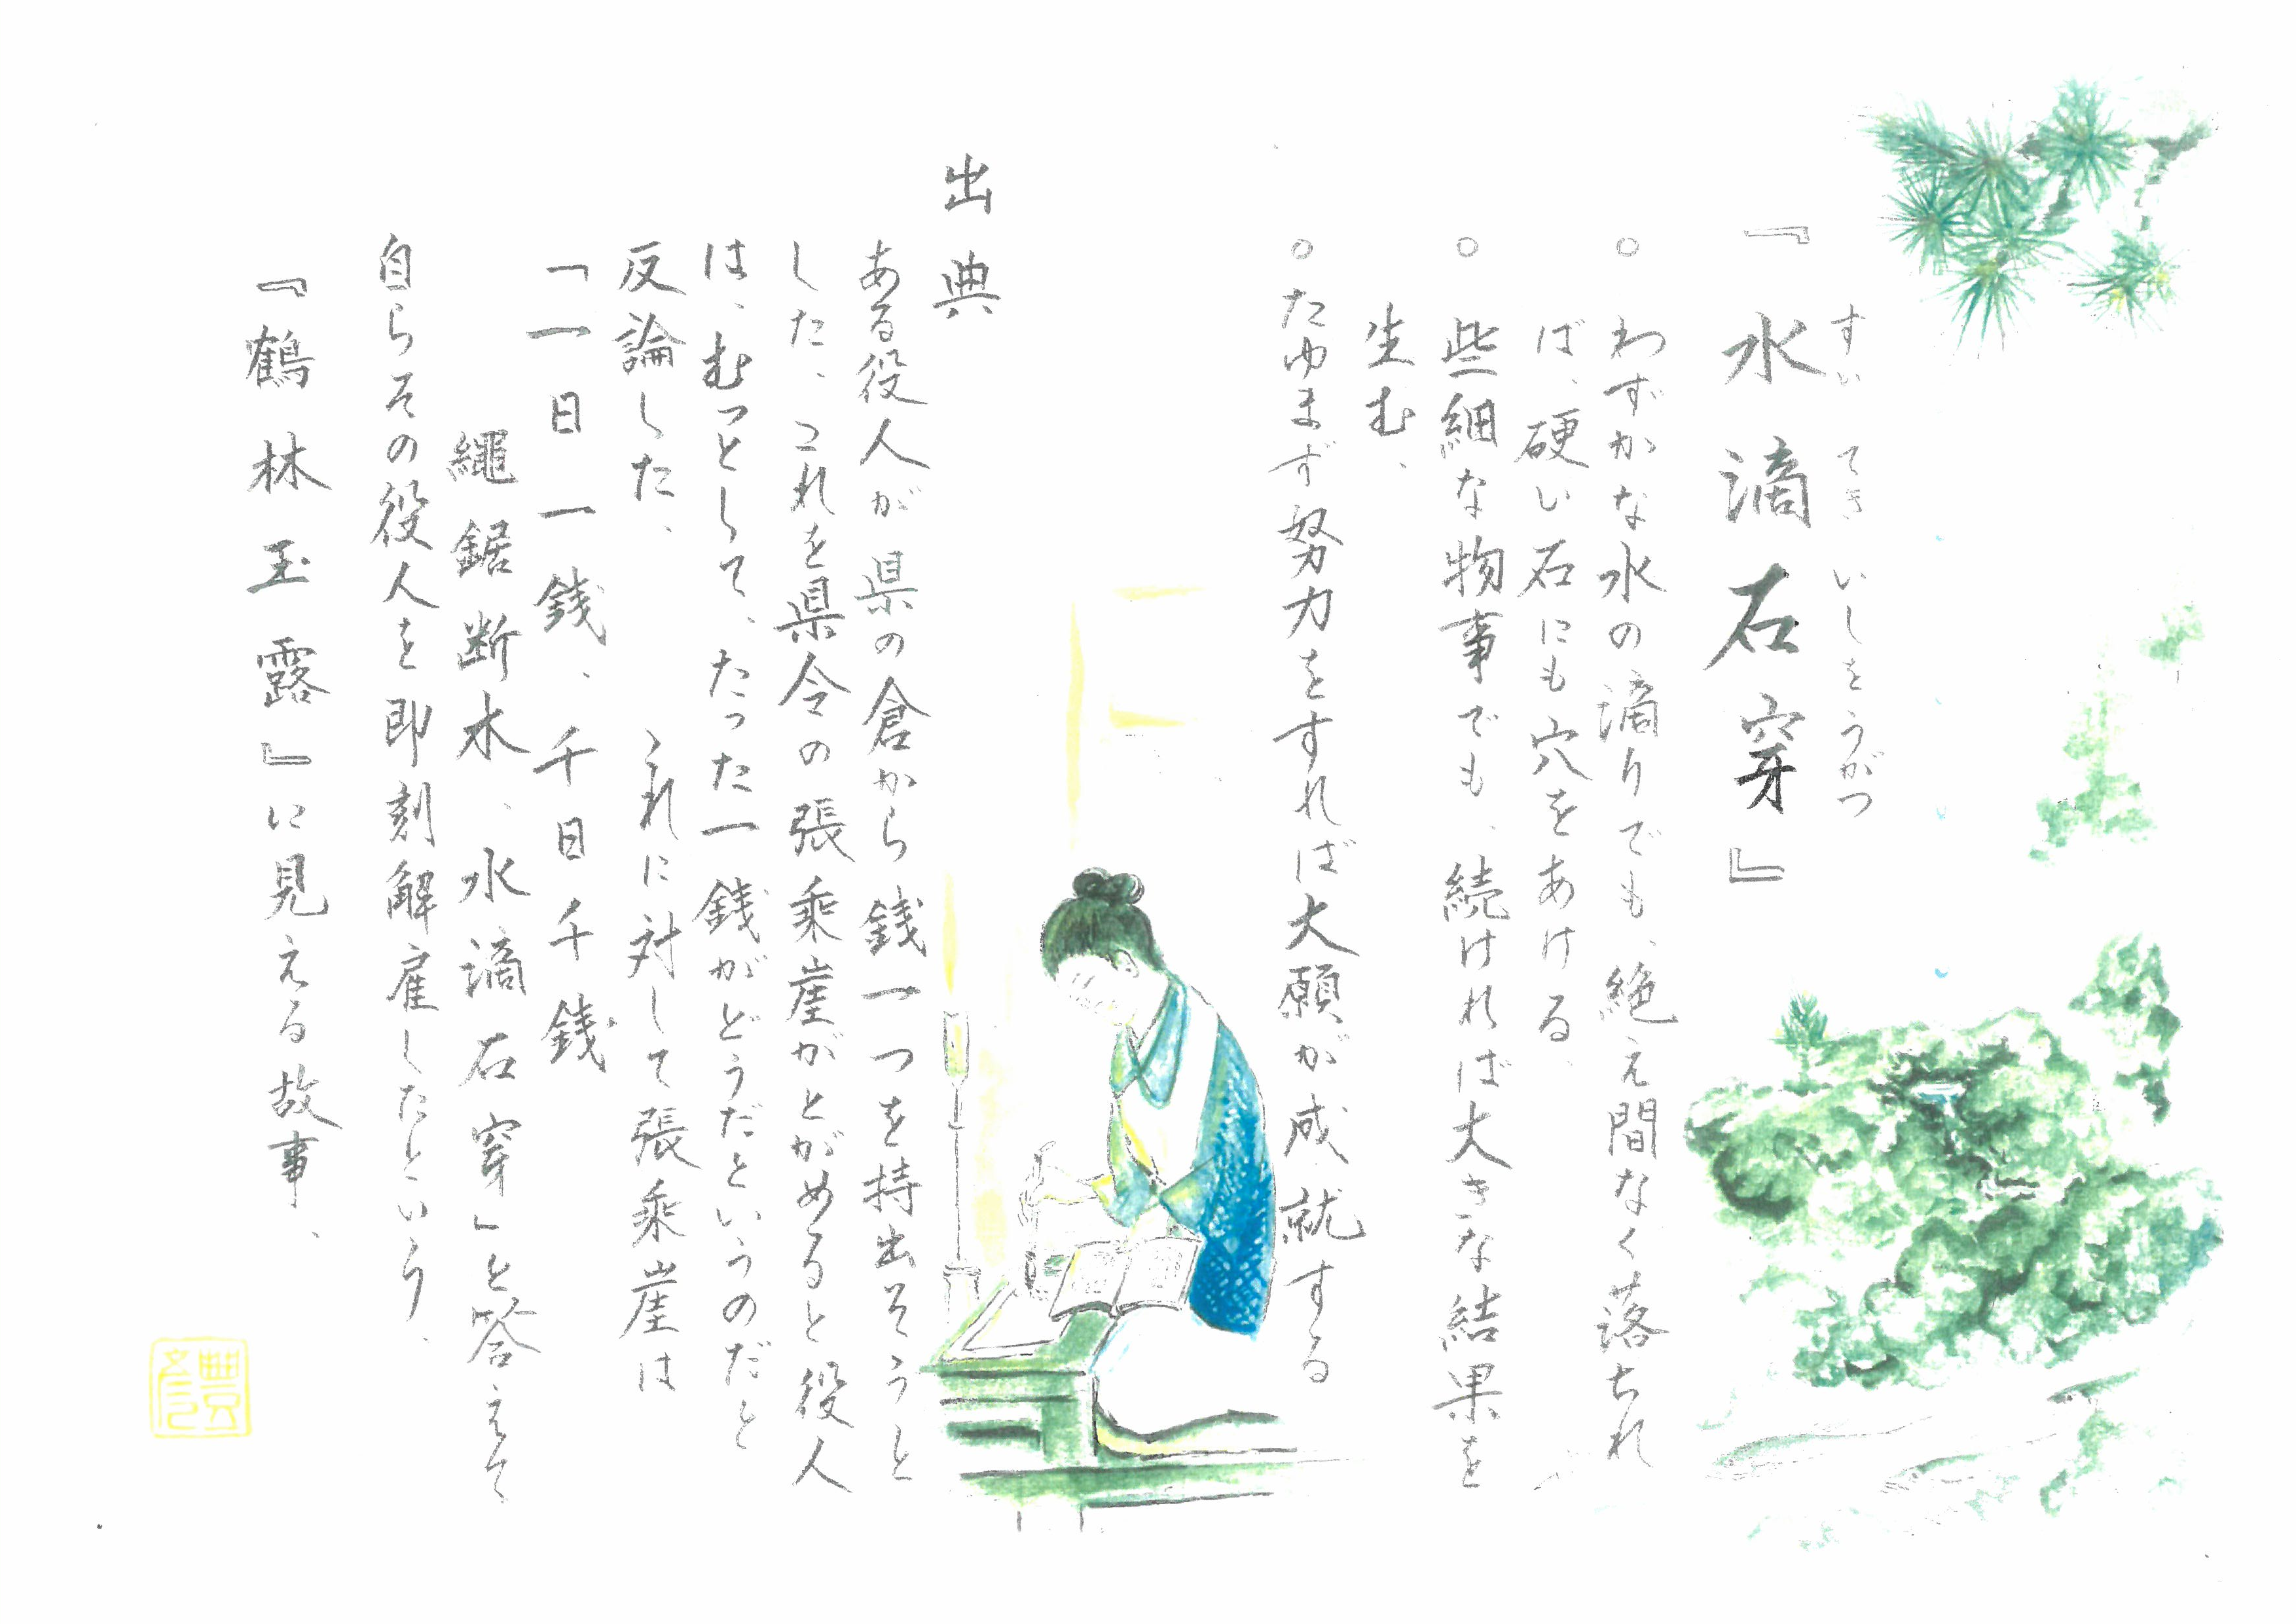 『水滴石穿』
すい てき いしをうがつ
○ わずかな水の滴りでも、絶え間なく落ちれ
ば、硬い石にも穴をあける、
○ 些細な物事でも、続ければ大きな結果を
生む、
○ たゆまず努力をすれば大願が成就する
出典
ある役人が県の倉から銭一つを持出そうと
した、これを県令の張乘崖がとがめると役人
は、むっとして、たった一銭がどうだというのだと
反論した、 これに対して張乘崖は
「一日一銭、千日千銭
繩鋸断木、水滴石穿」と答えて
自らその役人を即刻解雇したという、
『鶴林玉露』に見える故事、